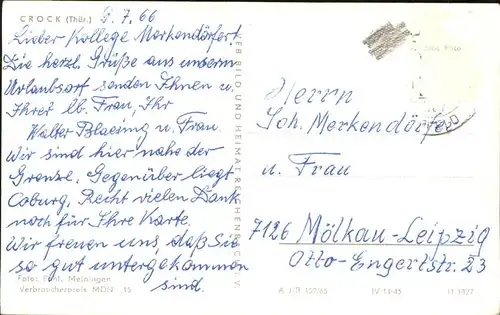 CROCK (Thür.)
5.7.66
Lieber Kollege Merkendörfer!
Die herzl. Grüße aus unserm
Urlaubsort senden Ihnen u.
Ihrer lb. Frau, Ihr
Walter Blaesing u. Frau.
Wir sind hier nahe der
Grenze. Gegenüber liegt
Coburg. Recht vielen Dank
noch für Ihre Karte.
Wir freuen uns, daß Sie
so gut untergekommen
sind.
Foto: Meiningen
Verbraucherpreis MDN -,15
VEB BILD UND HEIMAT REICHENBACH I. V.
Herrn
Joh. Merkendörfer
u. Frau
7126 Mölkau-Leipzig
Otto-Engertstr. 23
IV 14-45